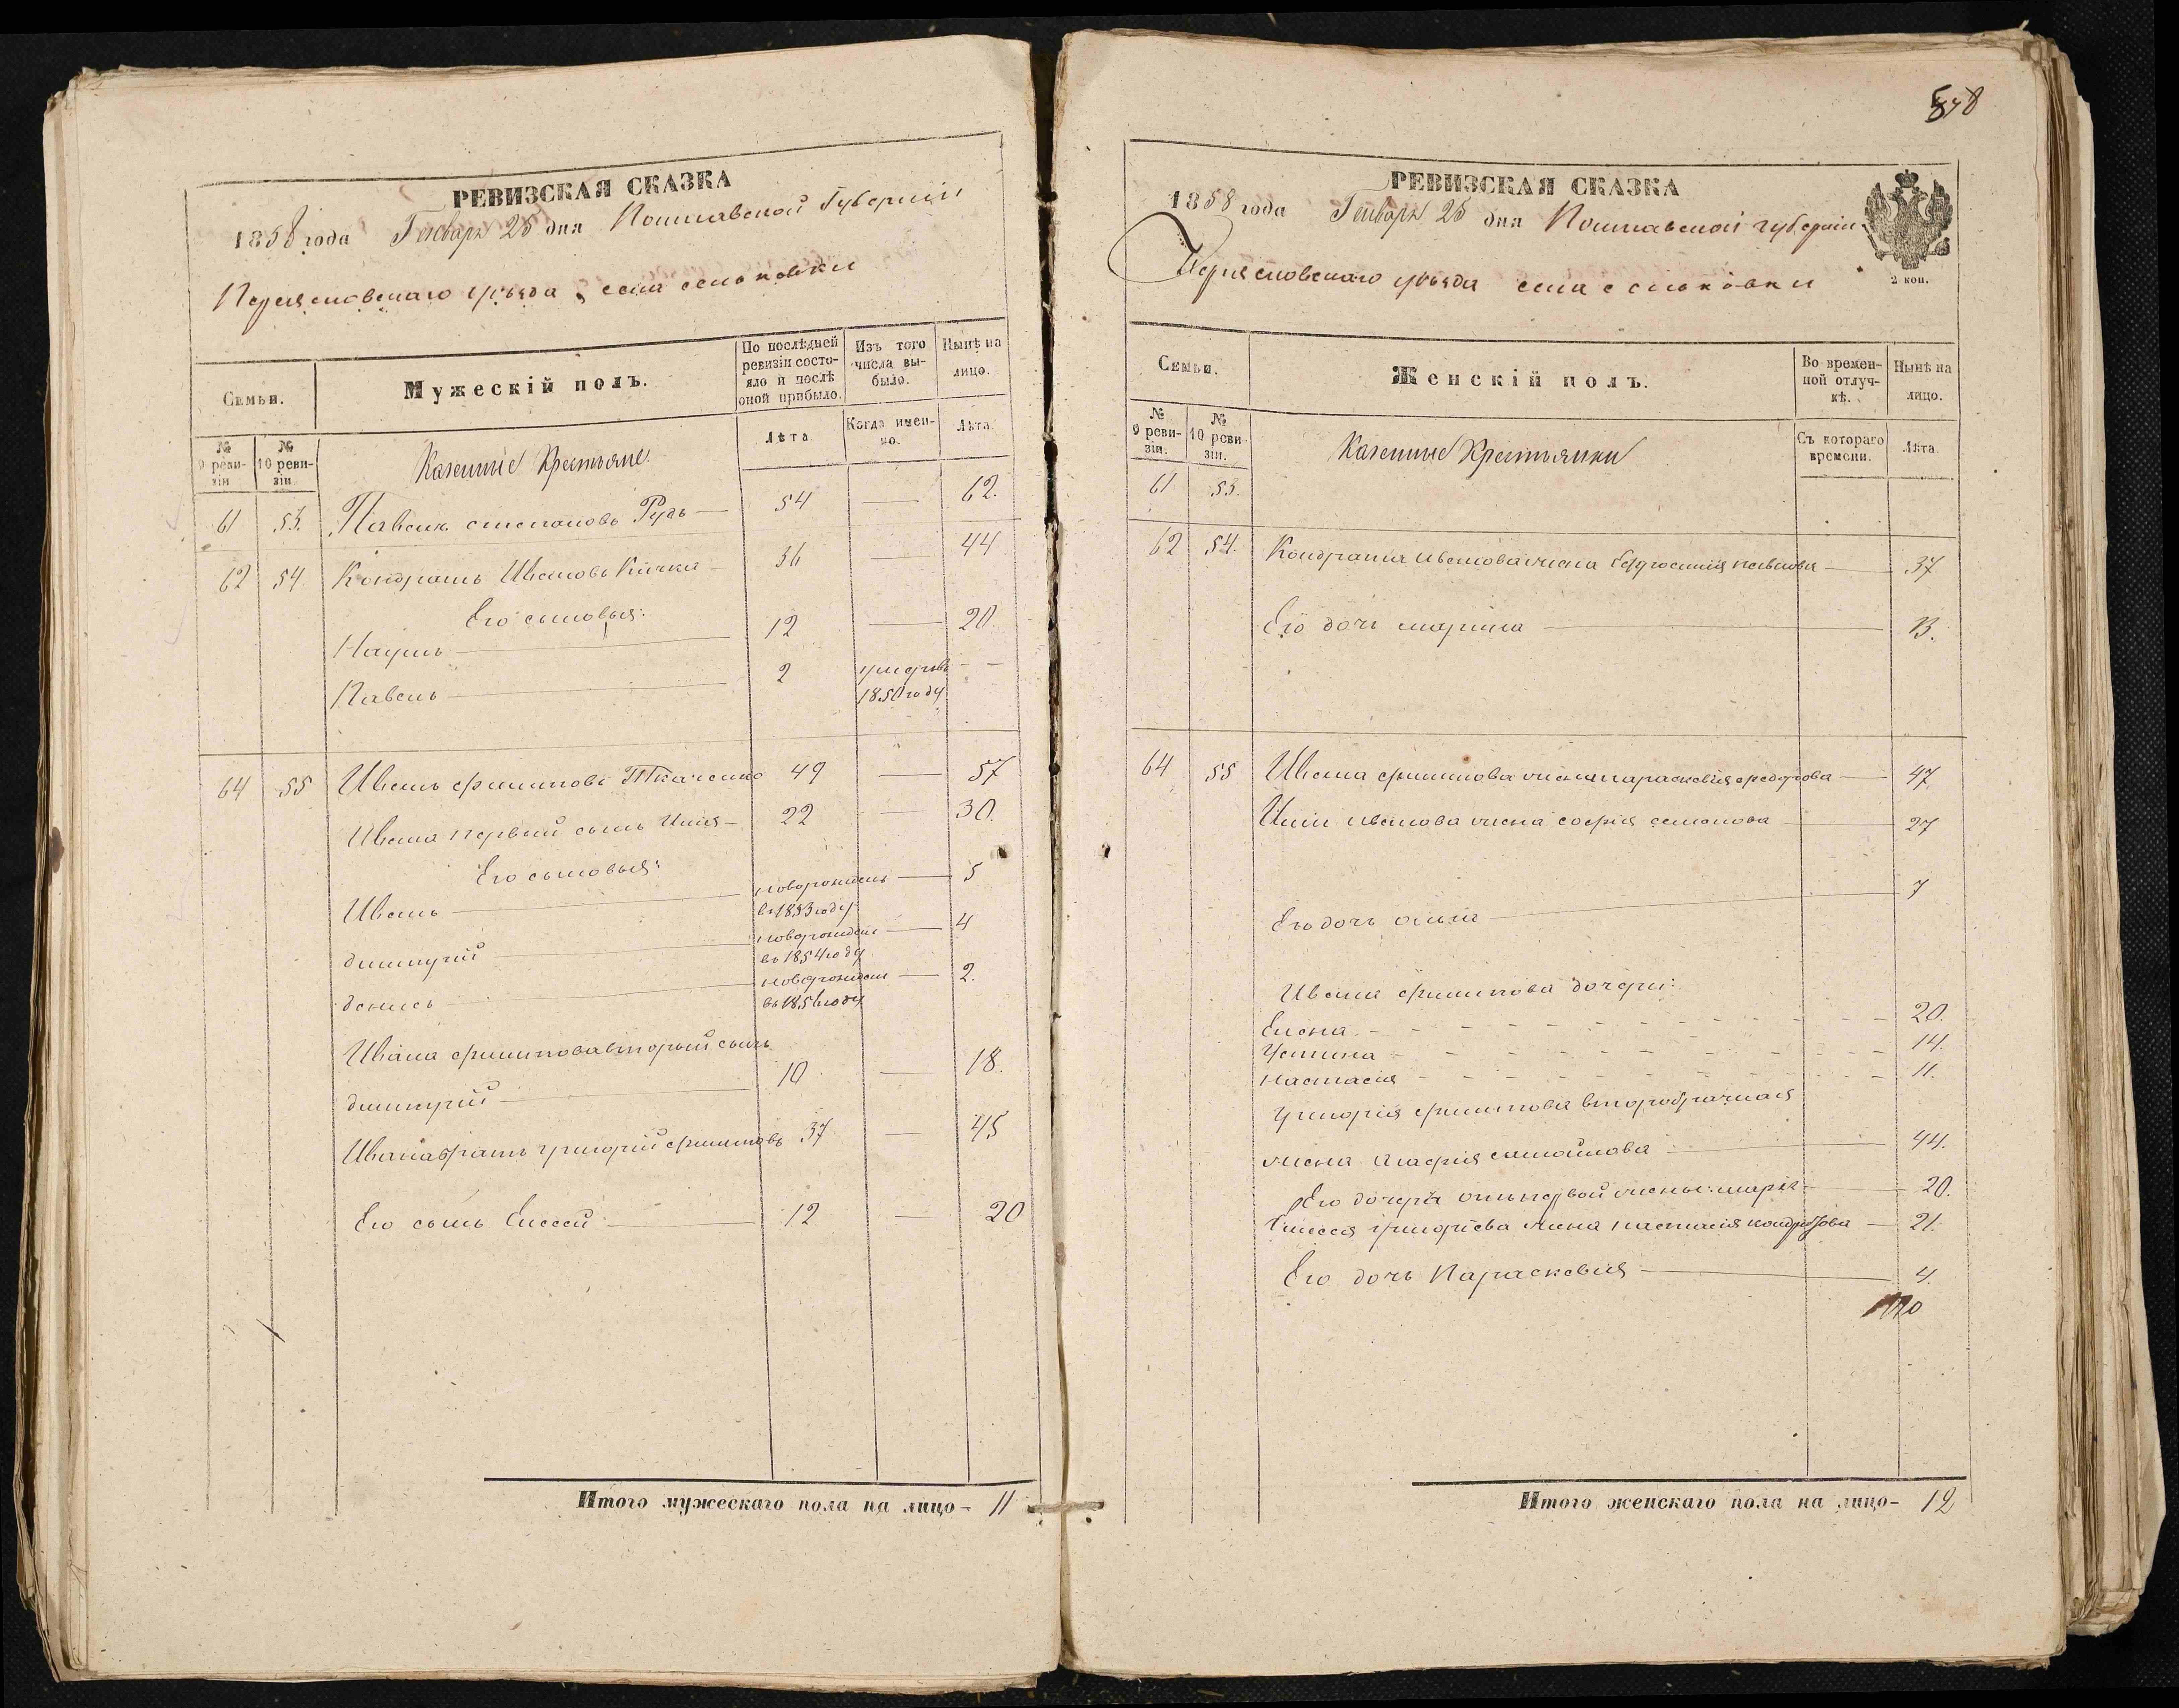 РЕВИЗСКАЯ СКАЗКА
1858 года Генваря 25 дня Полтавской Губерніи
Переясловскаго уѣзда, села сеньковки
Семьи.
Мужескій полъ.
По послѣдней ревизіи состояло и послѣ оной прибыло.
Изъ того числа выбыло.
Нынѣ на лицо.
№ 9 ревизіи
№ 10 ревизіи
Казенные Крестьяне.
Лѣта
Когда именно.
Лѣта.
61 53. Павелъ степановъ Рудь — 54 — 62.
62 54 Кондратъ Ивановъ Качка — 36 — 44
Его сыновья:
Наумъ — 12 — 20.
Павелъ — 2 умеръ въ — —
1850 году
64 55 Иванъ филиповъ Ткаченко 49 — 57
Ивана первый сынъ Илия — 22 — 30.
Его сыновья:
Иванъ — новорожденъ — 5
въ 1853 году
димитрій — новорожден — 4
въ 1854 году
денисъ — новорожден — 2.
въ 1856 году
Ивана филипова вторый сынъ
димитрій — 10 — 18.
Ивана братъ григорій филиповъ 37 — 45
Его сынъ Елисей — 12 — 20
Итого мужескаго пола на лицо — 11
РЕВИЗСКАЯ СКАЗКА
1858 года Генваря 25 дня Полтавской губерніи
Переясловскаго уѣзда села сеньковки
2 коп.
Семьи.
Женскій полъ.
Во временной отлучкѣ.
Нынѣ на лицо.
№ 9 ревизіи.
№ 10 ревизіи.
Казенные Крестьянки
Съ котораго времени.
Лѣта.
61 53.
62 54. Кондрата иванова жена Евдокия павлова — 37
Его дочь марина — 13.
64 55 Ивана филипова жена параскевия федорова — 47
Илии иванова жена софия семенова — 27
Его дочь ольга — 7
Ивана филипова дочери:
Елена — 20.
Устина — 14.
настасия — 11.
григория филипова второбрачная
жена агафия самойлова — 44.
Его дочери отъ первой жены: мария — 20.
Елисея григорієва жена настасия кондратова — 21.
Его дочь Параскевия — 4.
Итого женскаго пола на лицо — 12